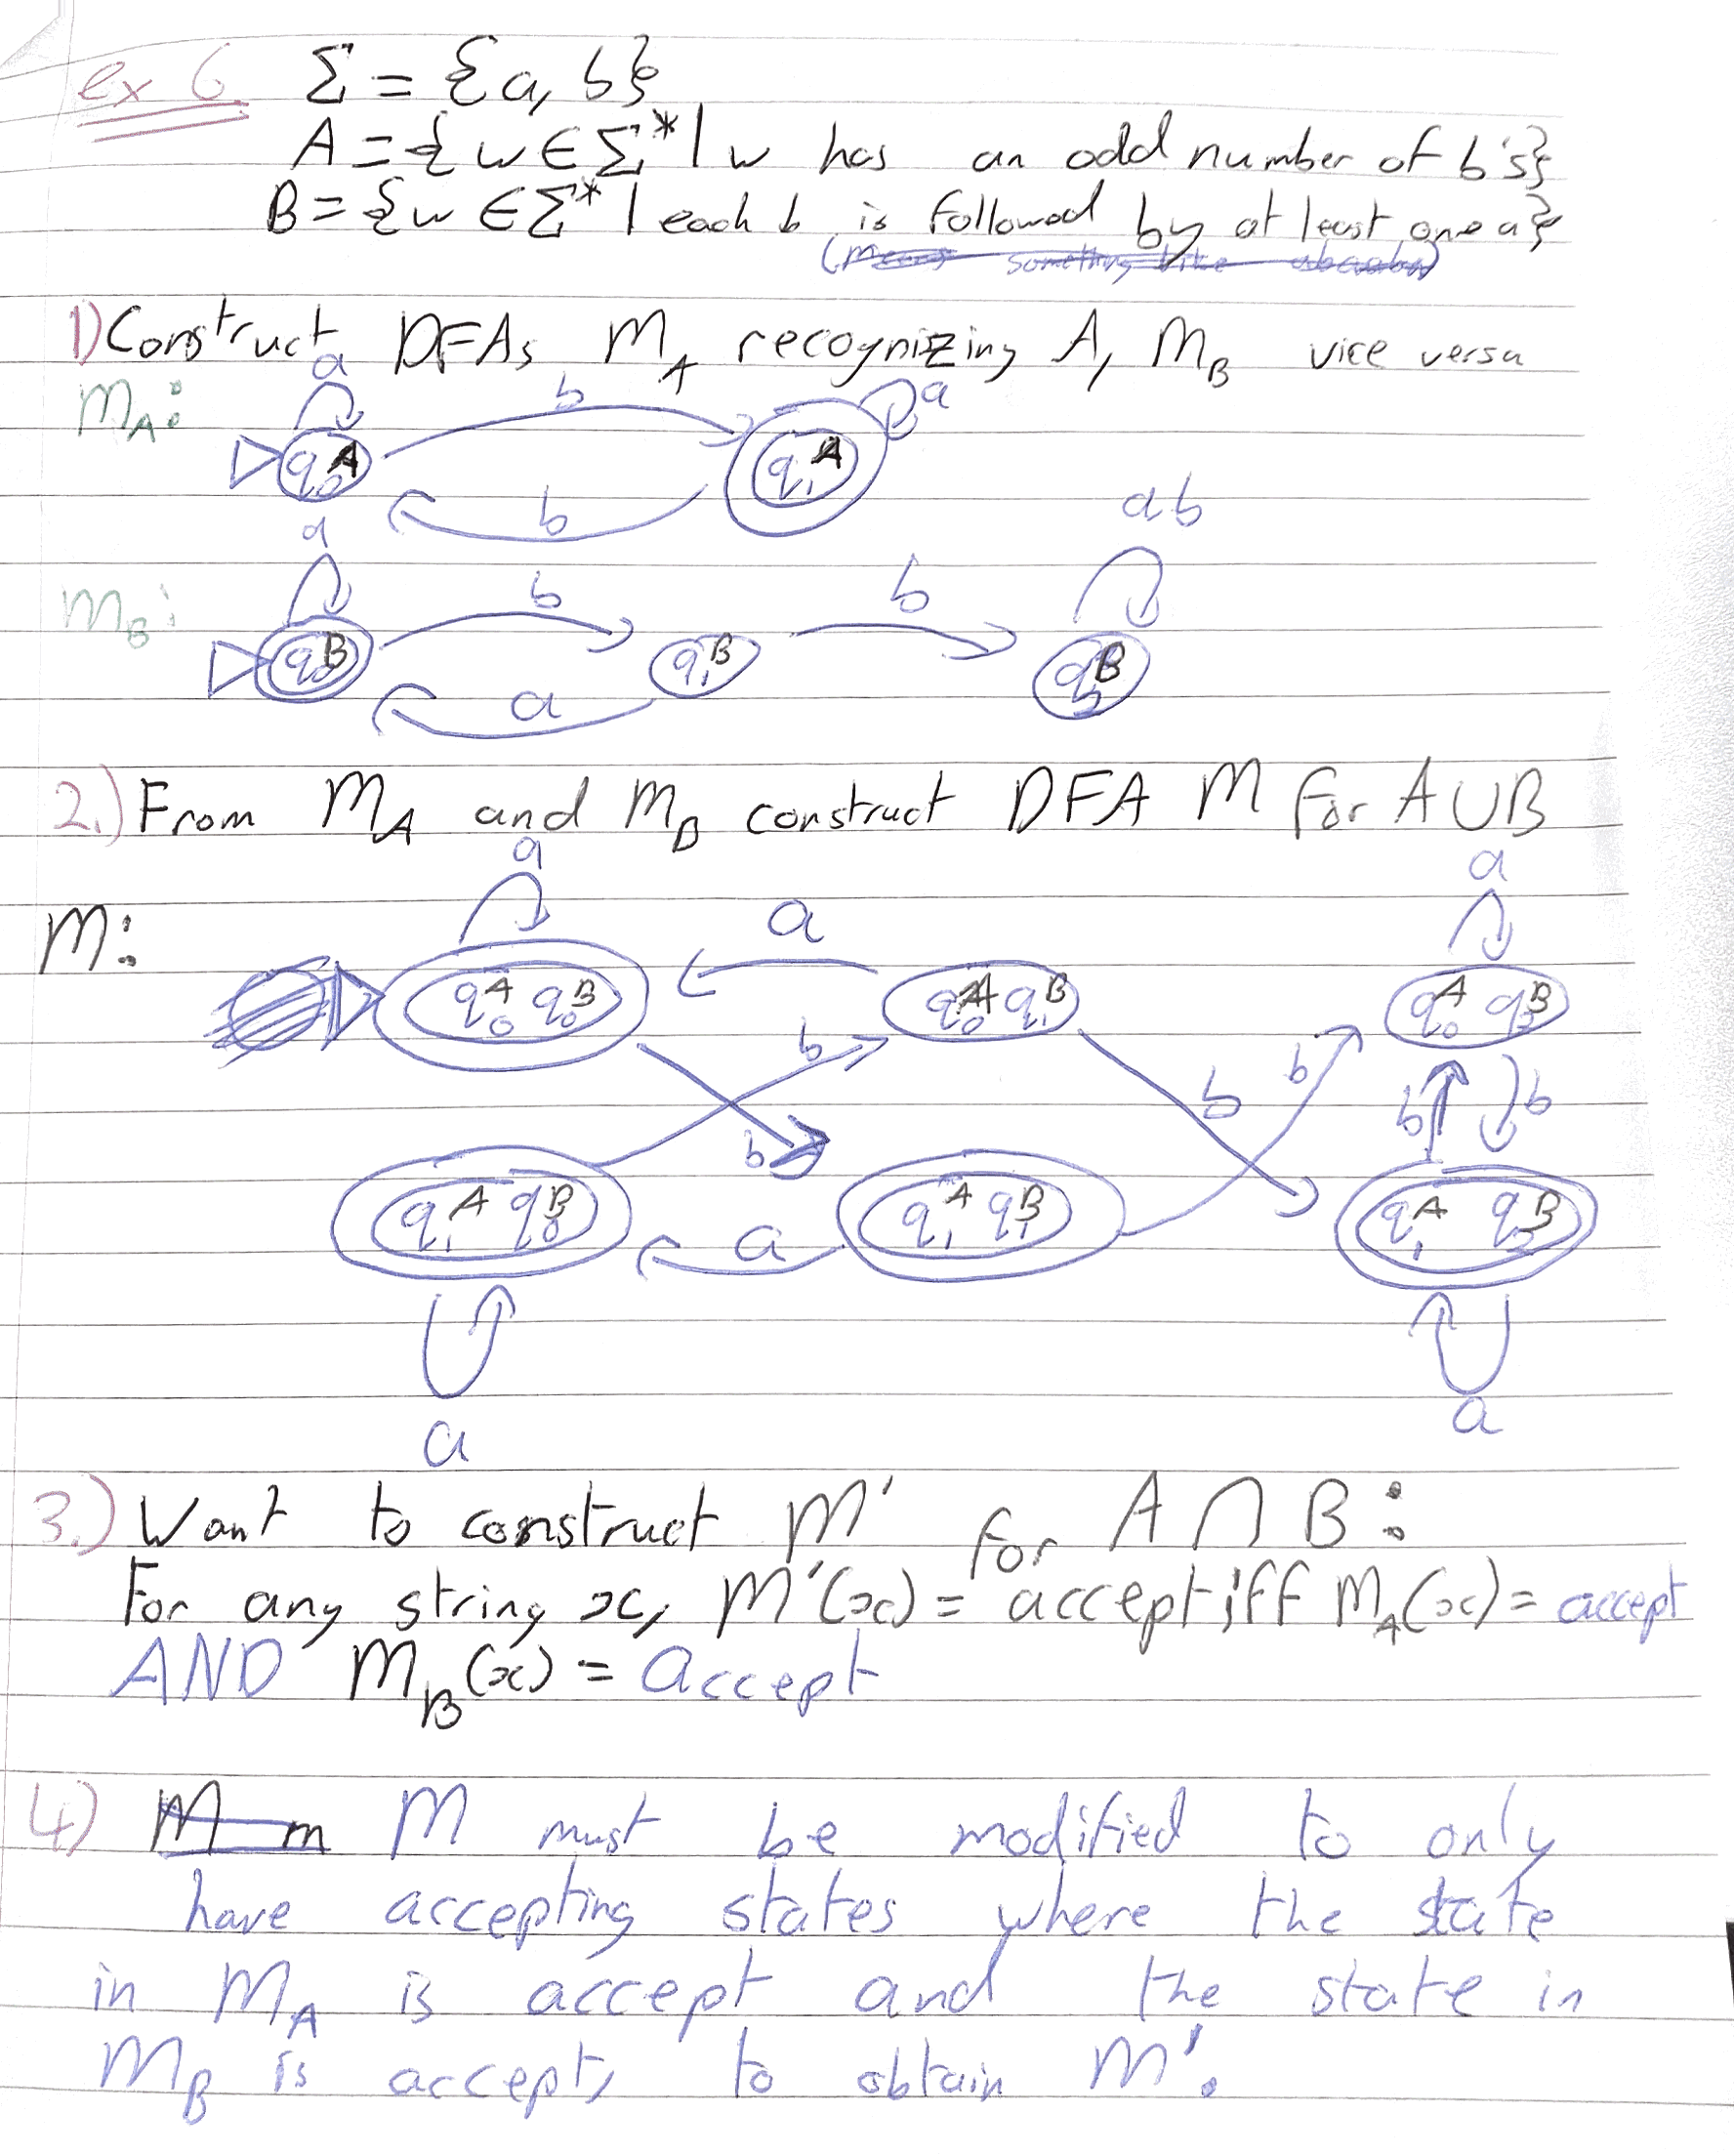 ex 6 Σ = {a, b}
A = {w ∈ Σ* | w has an odd number of b's}
B = {w ∈ Σ* | each b is followed by at least one a}
(means something like
1) Construct DFAs M_A recognizing A, M_B vice versa
a
M_A: b a
q₀^A q₁^A
b
a ab
M_B: b b
q₀^B q₁^B q₂^B
a
2.) From M_A and M_B construct DFA M for A ∪ B
a a
M: a
q₀^A q₀^B q₀^A q₁^B q₀^A q₂^B
b b b b b
b
q₁^A q₀^B q₁^A q₁^B q₁^A q₂^B
a
a a
3.) Want to construct M' for A ∩ B:
For any string x, M'(x) = accept iff M_A(x) = accept
AND M_B(x) = accept
4) M m M must be modified to only
have accepting states where the state
in M_A is accept and the state in
M_B is accept, to obtain M'.